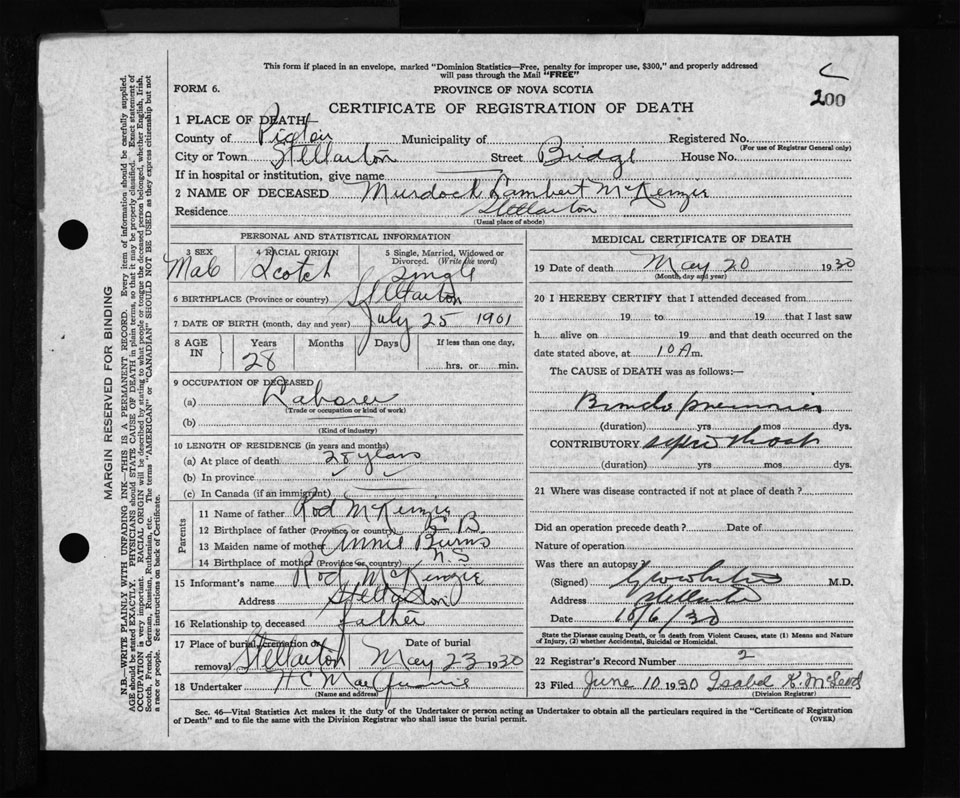 This form if placed in an envelope, marked "Dominion Statistics—Free, penalty for improper use, $300," and properly addressed
will pass through the Mail "FREE"
FORM 6.
PROVINCE OF NOVA SCOTIA
200
CERTIFICATE OF REGISTRATION OF DEATH
1 PLACE OF DEATH
County of Pictou Municipality of Registered No.
(For use of Registrar General only)
City or Town Stellarton Street Bridge House No.
If in hospital or institution, give name
2 NAME OF DECEASED Murdoch Lambert McKenzie
Residence Stellarton
(Usual place of abode)
PERSONAL AND STATISTICAL INFORMATION
3 SEX Male
4 RACIAL ORIGIN Scotch
5 Single, Married, Widowed or Divorced. (Write the word) Single
6 BIRTHPLACE (Province or country) Stellarton
7 DATE OF BIRTH (month, day and year) July 25 1901
8 AGE IN Years 28 Months Days If less than one day, hrs. or min.
9 OCCUPATION OF DECEASED
(a) Laborer
(Trade or occupation or kind of work)
(b)
(Kind of industry)
10 LENGTH OF RESIDENCE (in years and months)
(a) At place of death 28 years
(b) In province
(c) In Canada (if an immigrant)
Parents
11 Name of father Rod McKenzie
12 Birthplace of father (Province or country) C B
13 Maiden name of mother Annie Burns
14 Birthplace of mother (Province or country) N.S
15 Informant's name Rod McKenzie
Address Stellarton
16 Relationship to deceased father
17 Place of burial, cremation or removal Stellarton Date of burial May 23 1930
18 Undertaker H C Mac
(Name and address)
MEDICAL CERTIFICATE OF DEATH
19 Date of death May 20 1930
(Month, day and year)
20 I HEREBY CERTIFY that I attended deceased from
19 to 19 that I last saw
h alive on 19 and that death occurred on the
date stated above, at 10 A m.
The CAUSE of DEATH was as follows:—
Broncho pneumonia
(duration) yrs mos dys.
CONTRIBUTORY septic throat
(duration) yrs mos dys.
21 Where was disease contracted if not at place of death?
Did an operation precede death? Date of
Nature of operation
Was there an autopsy?
(Signed) M.D.
Address Stellarton
Date 10/6/30
State the Disease causing Death, or in death from Violent Causes, state (1) Means and Nature
of Injury, (2) whether Accidental, Suicidal or Homicidal.
22 Registrar's Record Number 2
23 Filed June 10 1930 Isabel K. McLeod
(Division Registrar)
Sec. 46—Vital Statistics Act makes it the duty of the Undertaker or person acting as Undertaker to obtain all the particulars required in the "Certificate of Registration
of Death" and to file the same with the Division Registrar who shall issue the burial permit.
(OVER)
MARGIN RESERVED FOR BINDING
N.B.—WRITE PLAINLY WITH UNFADING INK—THIS IS A PERMANENT RECORD. Every item of information should be carefully supplied.
AGE should be stated EXACTLY. PHYSICIANS should STATE CAUSE OF DEATH in plain terms, so that it may be properly classified. Exact statement of
OCCUPATION is very important. RACIAL ORIGIN will be described by stating to what people or tongue the deceased person belonged, whether English, Irish,
Scotch, French, German, Russian, Ruthenian, etc. The terms "AMERICAN" or "CANADIAN" SHOULD NOT BE USED as they express citizenship but not
a race or people. See instructions on back of Certificate.